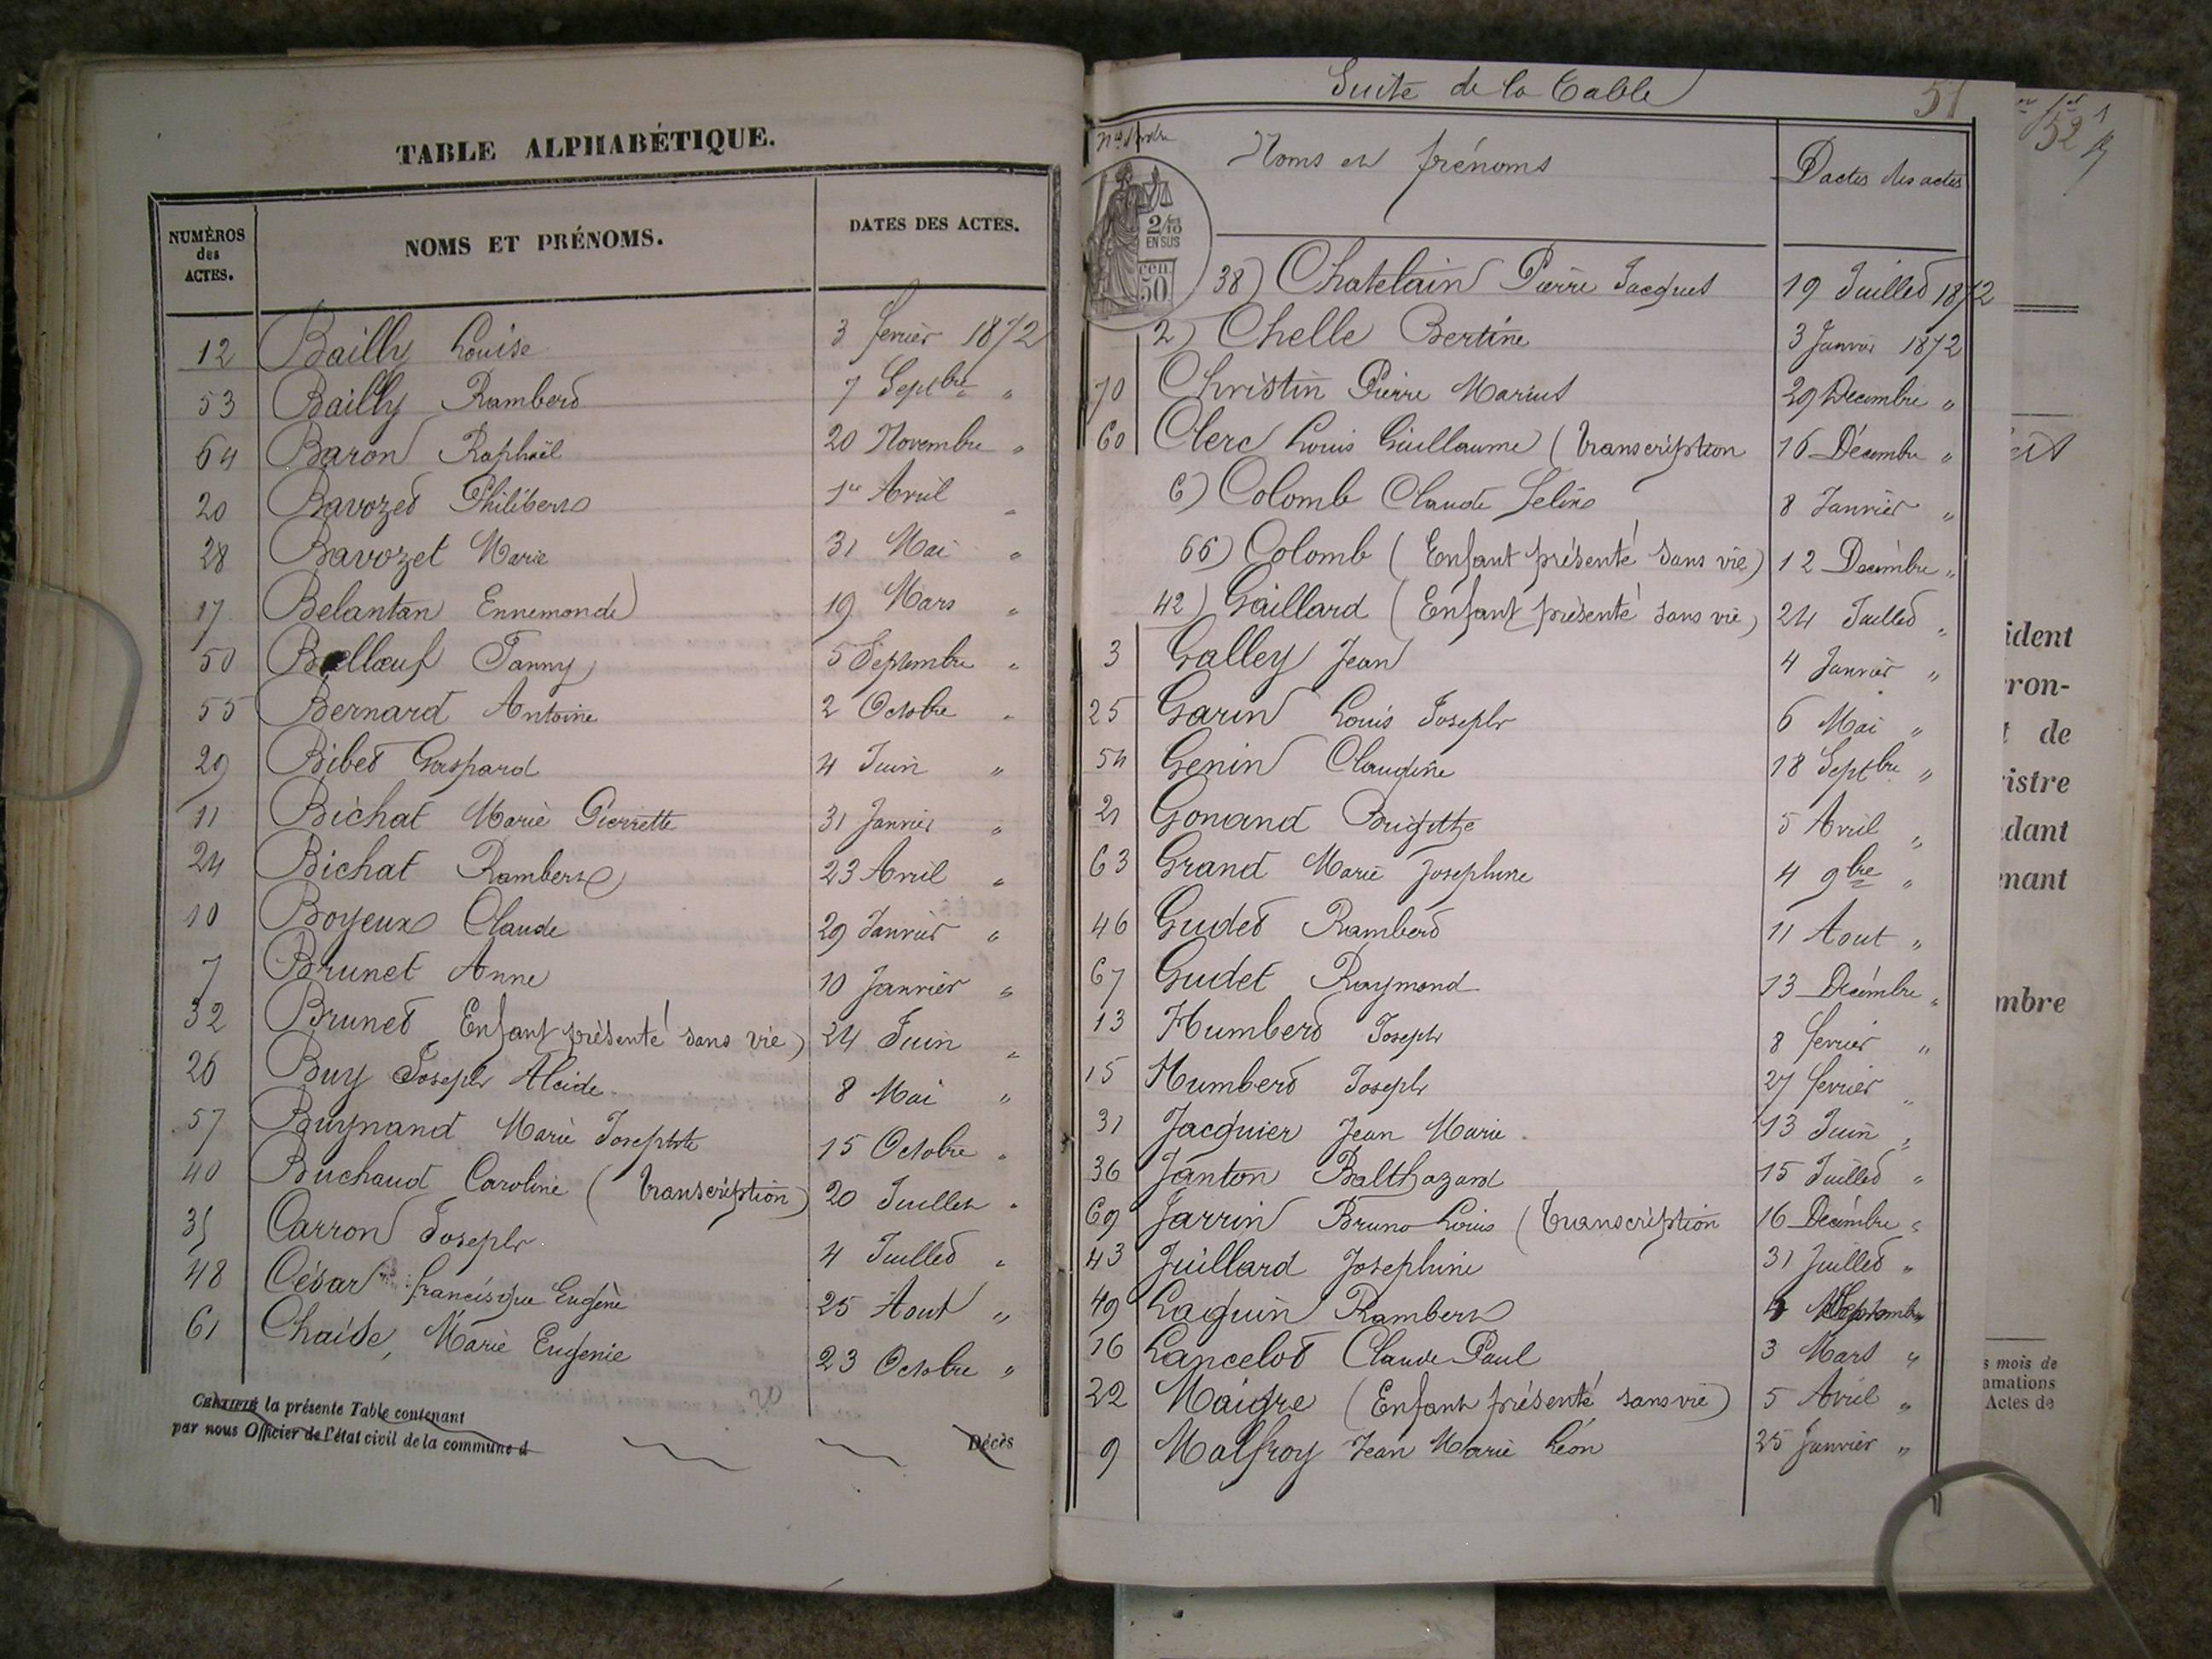 TABLE ALPHABÉTIQUE.
NUMÉROS des ACTES. NOMS ET PRÉNOMS. DATES DES ACTES.
12 Bailly Louise 3 fevrier 1872
53 Bailly Rambert 7 Septbre "
64 Baron Raphaël 20 Novembre "
20 Bavozet Philibert 1er Avril "
28 Bavozet Marie 31 Mai "
17 Belantan Ennemonde 19 Mars "
50 Bellœuf Fanny 5 Septembre "
55 Bernard Antoine 2 Octobre "
29 Bibet Gaspard 4 Juin "
11 Bichat Marie Pierrette 31 Janvier "
24 Bichat Rambert 23 Avril "
10 Boyeux Claude 29 Janvier "
7 Brunet Anne 10 Janvier "
32 Brunet Enfant présenté sans vie) 24 Juin "
26 Buy Joseph Alcide 8 Mai "
57 Buynand Marie Josephte 15 Octobre "
40 Buchaud Caroline (transcription) 20 Juillet "
35 Carron Joseph 4 Juillet "
48 César francisque Eugène 25 Aout "
61 Chaise, Marie Eugenie 23 Octobre "
20
CERTIFIÉ la présente Table contenant
par nous Officier de l'état civil de la commune d Décès
Suite de la Table 51
Nos d'ordre Noms et prénoms Dactes des actes
2/10 EN SUS
50 cen.
38) Chatelain Pierre Jacques 19 Juillet 1872
2) Chelle Bertine 3 Janvier 1872
70 Christin Pierre Marius 29 Decembre "
60 Clerc Louis Guillaume (transcription 16 Décembre "
6) Colomb Claude Felix 8 Janvier "
66) Colomb (Enfant présenté sans vie) 12 Decembre "
42) Gaillard (Enfant présenté sans vie) 24 Juillet "
3 Galley Jean 4 Janvier "
25 Garin Louis Joseph 6 Mai "
54 Genin Claudine 18 Septbre "
21 Gonand Brigitte 5 Avril "
63 Grand Marie Josephine 4 9bre "
46 Gudet Rambert 11 Aout "
67 Gudet Raymond 13 Décembre "
13 Humbert Joseph 8 fevrier "
15 Humbert Joseph 27 fevrier "
31 Jacquier Jean Marie 13 Juin "
36 Janton Balthazard 15 Juillet "
69 Jarrin Bruno Louis (transcription 16 Décembre "
43 Juillard Josephine 31 Juillet "
49 Laguin Rambert Septembre
16 Lancelot Claude Paul 3 Mars "
22 Maigre (Enfant présenté sans vie) 5 Avril "
9 Malfroy Jean Marie Léon 25 Janvier "
52
ident
ron-
de
istre
dant
enant
mbre
s mois de
amations
Actes de